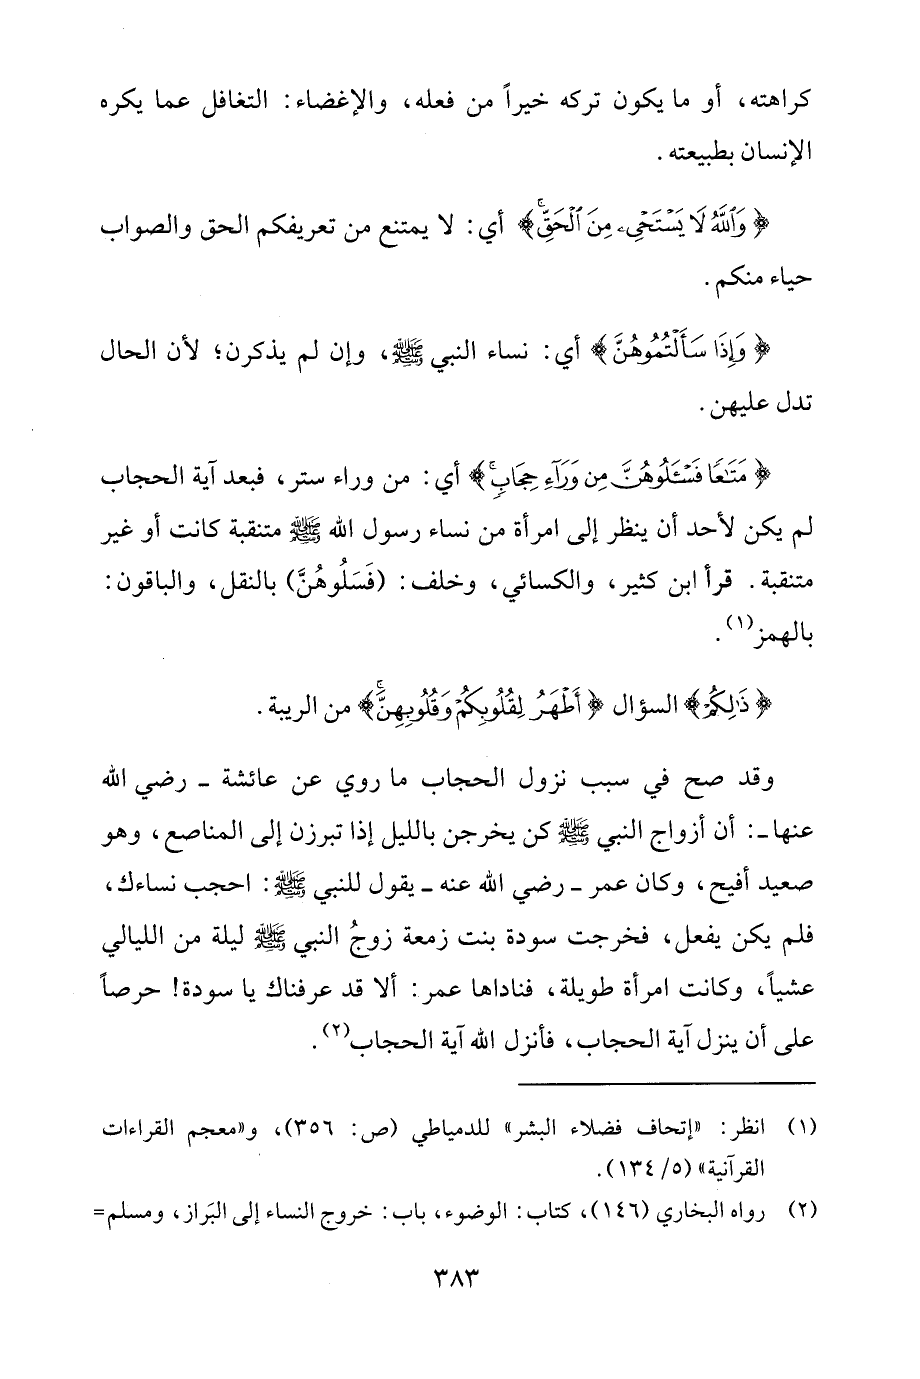 كراهته، أو ما يكون تركه خيراً من فعله، والإغضاء: التغافل عما يكره
الإنسان بطبيعته.
﴿وَٱللَّهُ لَا يَسْتَحْيِۦ مِنَ ٱلْحَقِّۚ﴾ أي: لا يمتنع من تعريفكم الحق والصواب
حياء منكم.
﴿وَإِذَا سَأَلْتُمُوهُنَّ﴾ أي: نساء النبي ﷺ، وإن لم يذكرن؛ لأن الحال
تدل عليهن.
﴿مَتَٰعًا فَسْـَٔلُوهُنَّ مِن وَرَآءِ حِجَابٍۚ﴾ أي: من وراء ستر، فبعد آية الحجاب
لم يكن لأحد أن ينظر إلى امرأة من نساء رسول الله ﷺ متنقبة كانت أو غير
متنقبة. قرأ ابن كثير، والكسائي، وخلف: (فَسَلُوهُنَّ) بالنقل، والباقون:
بالهمز(١).
﴿ذَٰلِكُمْ﴾ السؤال ﴿أَطْهَرُ لِقُلُوبِكُمْ وَقُلُوبِهِنَّۚ﴾ من الريبة.
وقد صح في سبب نزول الحجاب ما روي عن عائشة ـ رضي الله
عنها ـ: أن أزواج النبي ﷺ كن يخرجن بالليل إذا تبرزن إلى المناصع، وهو
صعيد أفيح، وكان عمر ـ رضي الله عنه ـ يقول للنبي ﷺ: احجب نساءك،
فلم يكن يفعل، فخرجت سودة بنت زمعة زوجُ النبي ﷺ ليلة من الليالي
عشياً، وكانت امرأة طويلة، فناداها عمر: ألا قد عرفناك يا سودة! حرصاً
على أن ينزل آية الحجاب، فأنزل الله آية الحجاب(٢).
(١) انظر: «إتحاف فضلاء البشر» للدمياطي (ص: ٣٥٦)، و«معجم القراءات
القرآنية» (٥/ ١٣٤).
(٢) رواه البخاري (١٤٦)، كتاب: الوضوء، باب: خروج النساء إلى البَراز، ومسلم=
٣٨٣